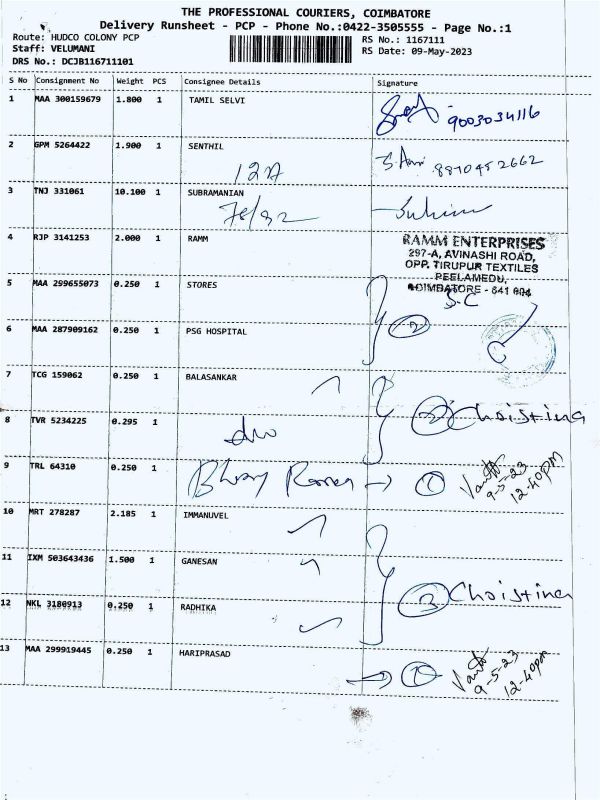 THE PROFESSIONAL COURIERS, COIMBATORE
Delivery Runsheet - PCP - Phone No.:0422-3505555 - Page No.:1
Route: HUDCO COLONY PCP
Staff: VELUMANI
DRS No.: DCJB116711101
RS No.: 1167111
RS Date: 09-May-2023
S No Consignment No Weight PCS Consignee Details Signature
1 MAA 300159679 1.800 1 TAMIL SELVI
9003034116
2 GPM 5264422 1.900 1 SENTHIL
12A 8870452662
3 TNJ 331061 10.100 1 SUBRAMANIAN
78/92
4 RJP 3141253 2.000 1 RAMM
RAMM ENTERPRISES
297-A, AVINASHI ROAD,
OPP. TIRUPUR TEXTILES
PEELAMEDU,
COIMBATORE - 641 004
5 MAA 299655073 0.250 1 STORES
S.C
6 MAA 287909162 0.250 1 PSG HOSPITAL
2
7 TCG 159062 0.250 1 BALASANKAR
2 Christina
8 TVR 5234225 0.295 1
9 TRL 64310 0.250 1
1
9-5-23
12-40pm
10 MRT 278287 2.185 1 IMMANUVEL
11 IXM 503643436 1.500 1 GANESAN
3 Christina
12 NKL 3180913 0.250 1 RADHIKA
13 MAA 299919445 0.250 1 HARIPRASAD
1
9-5-23
12-40pm